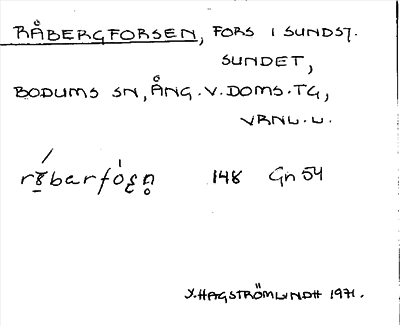 RÅBERGFORSEN, FORS I SUNDSJ.
SUNDET,
BODUMS SN, ÅNG. V. DOMS. TG,
VRNL. L.
148 Gn 54
Y. HAGSTRÖMLINDH 1971.